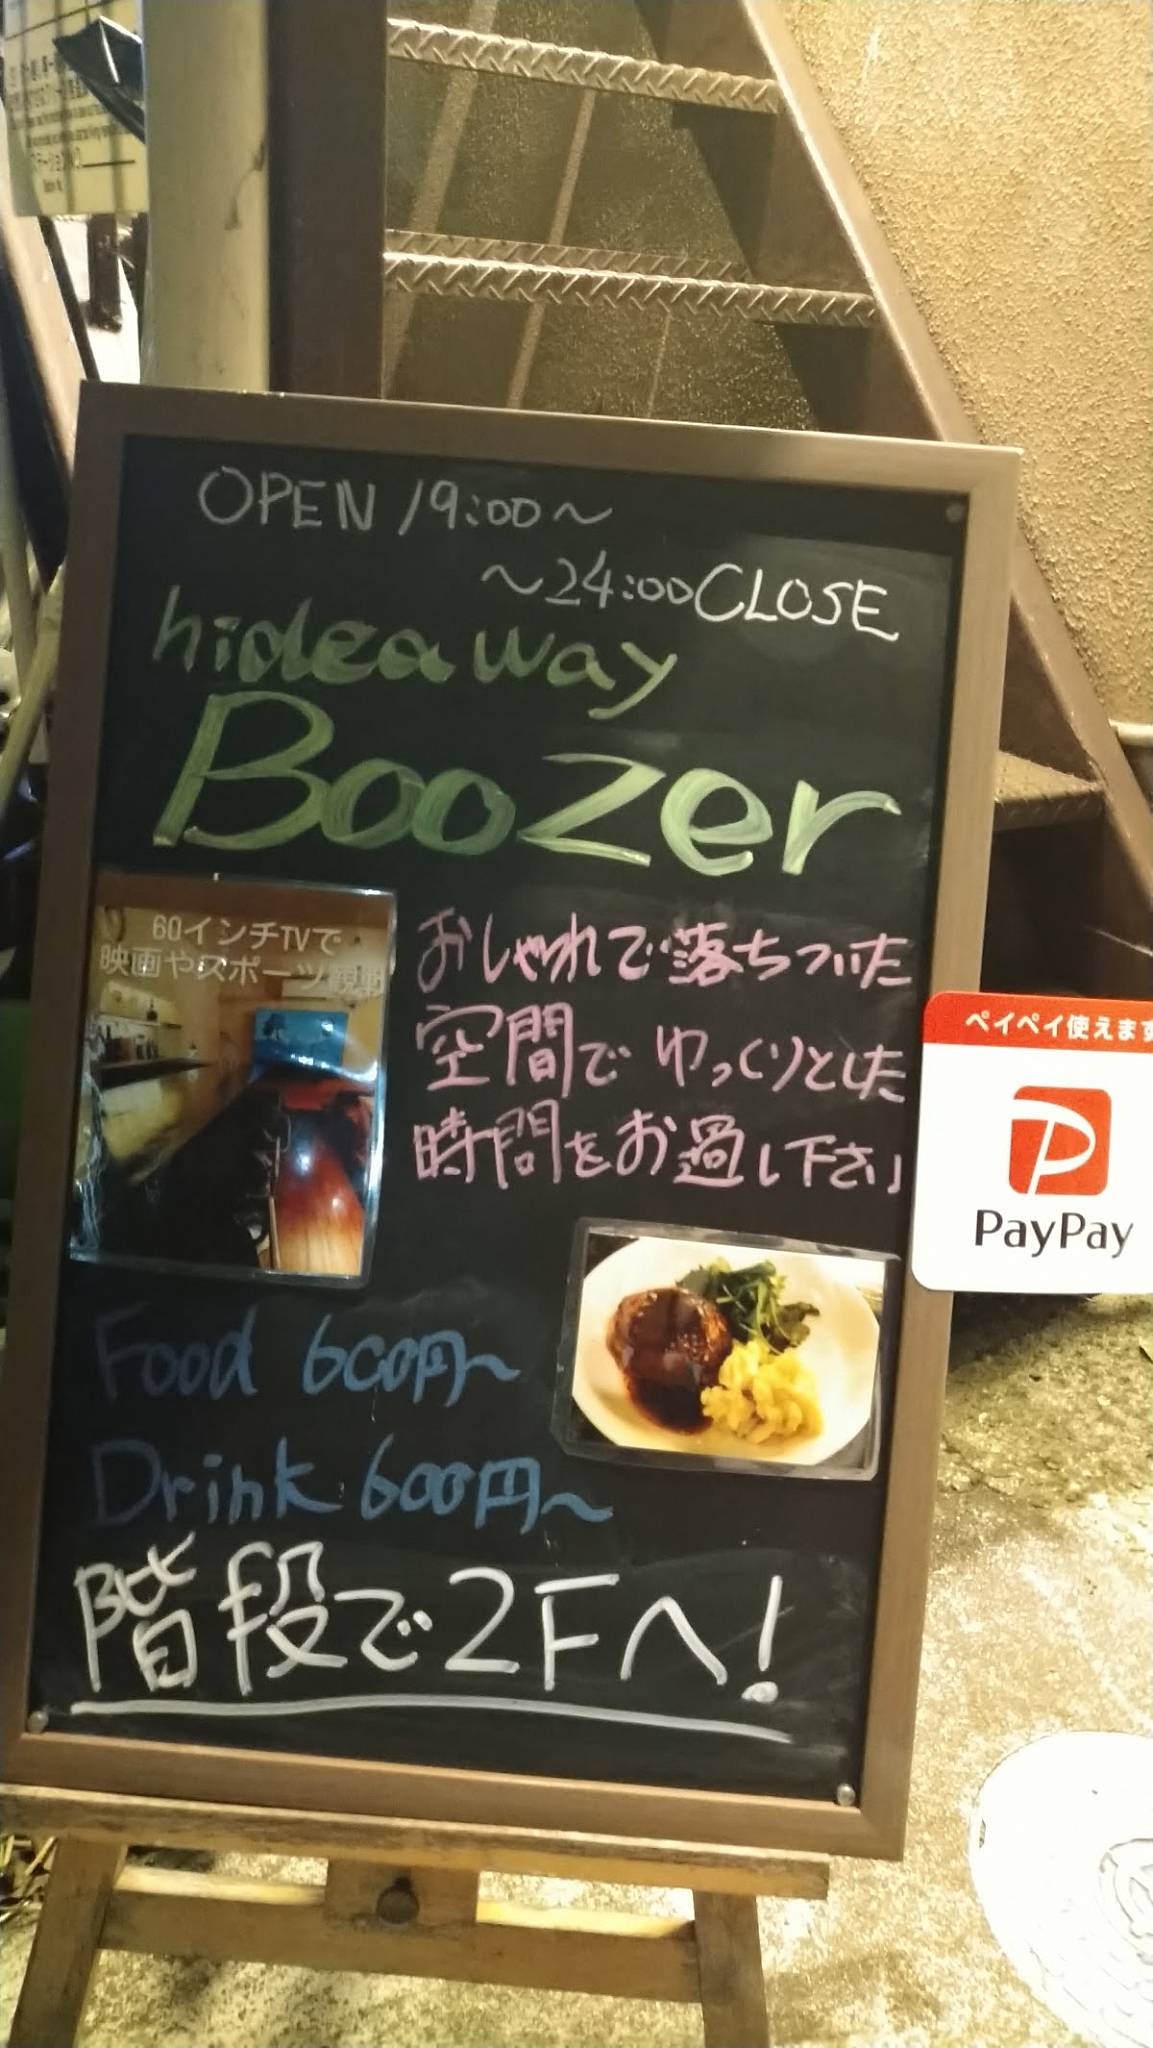 OPEN 19:00〜
〜24:00 CLOSE
hideaway
Boozer
60インチTVで
映画やスポーツ観戦
おしゃれで落ちついた
空間でゆっくりとした
時間をお過し下さい
ペイペイ使えます
PayPay
Food 600円〜
Drink 600円〜
階段で2Fへ!